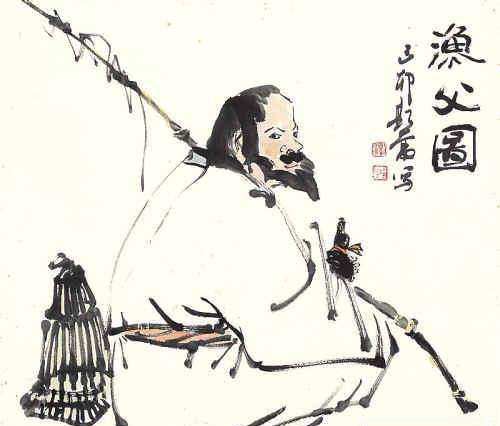 漁父圖
己卯
写